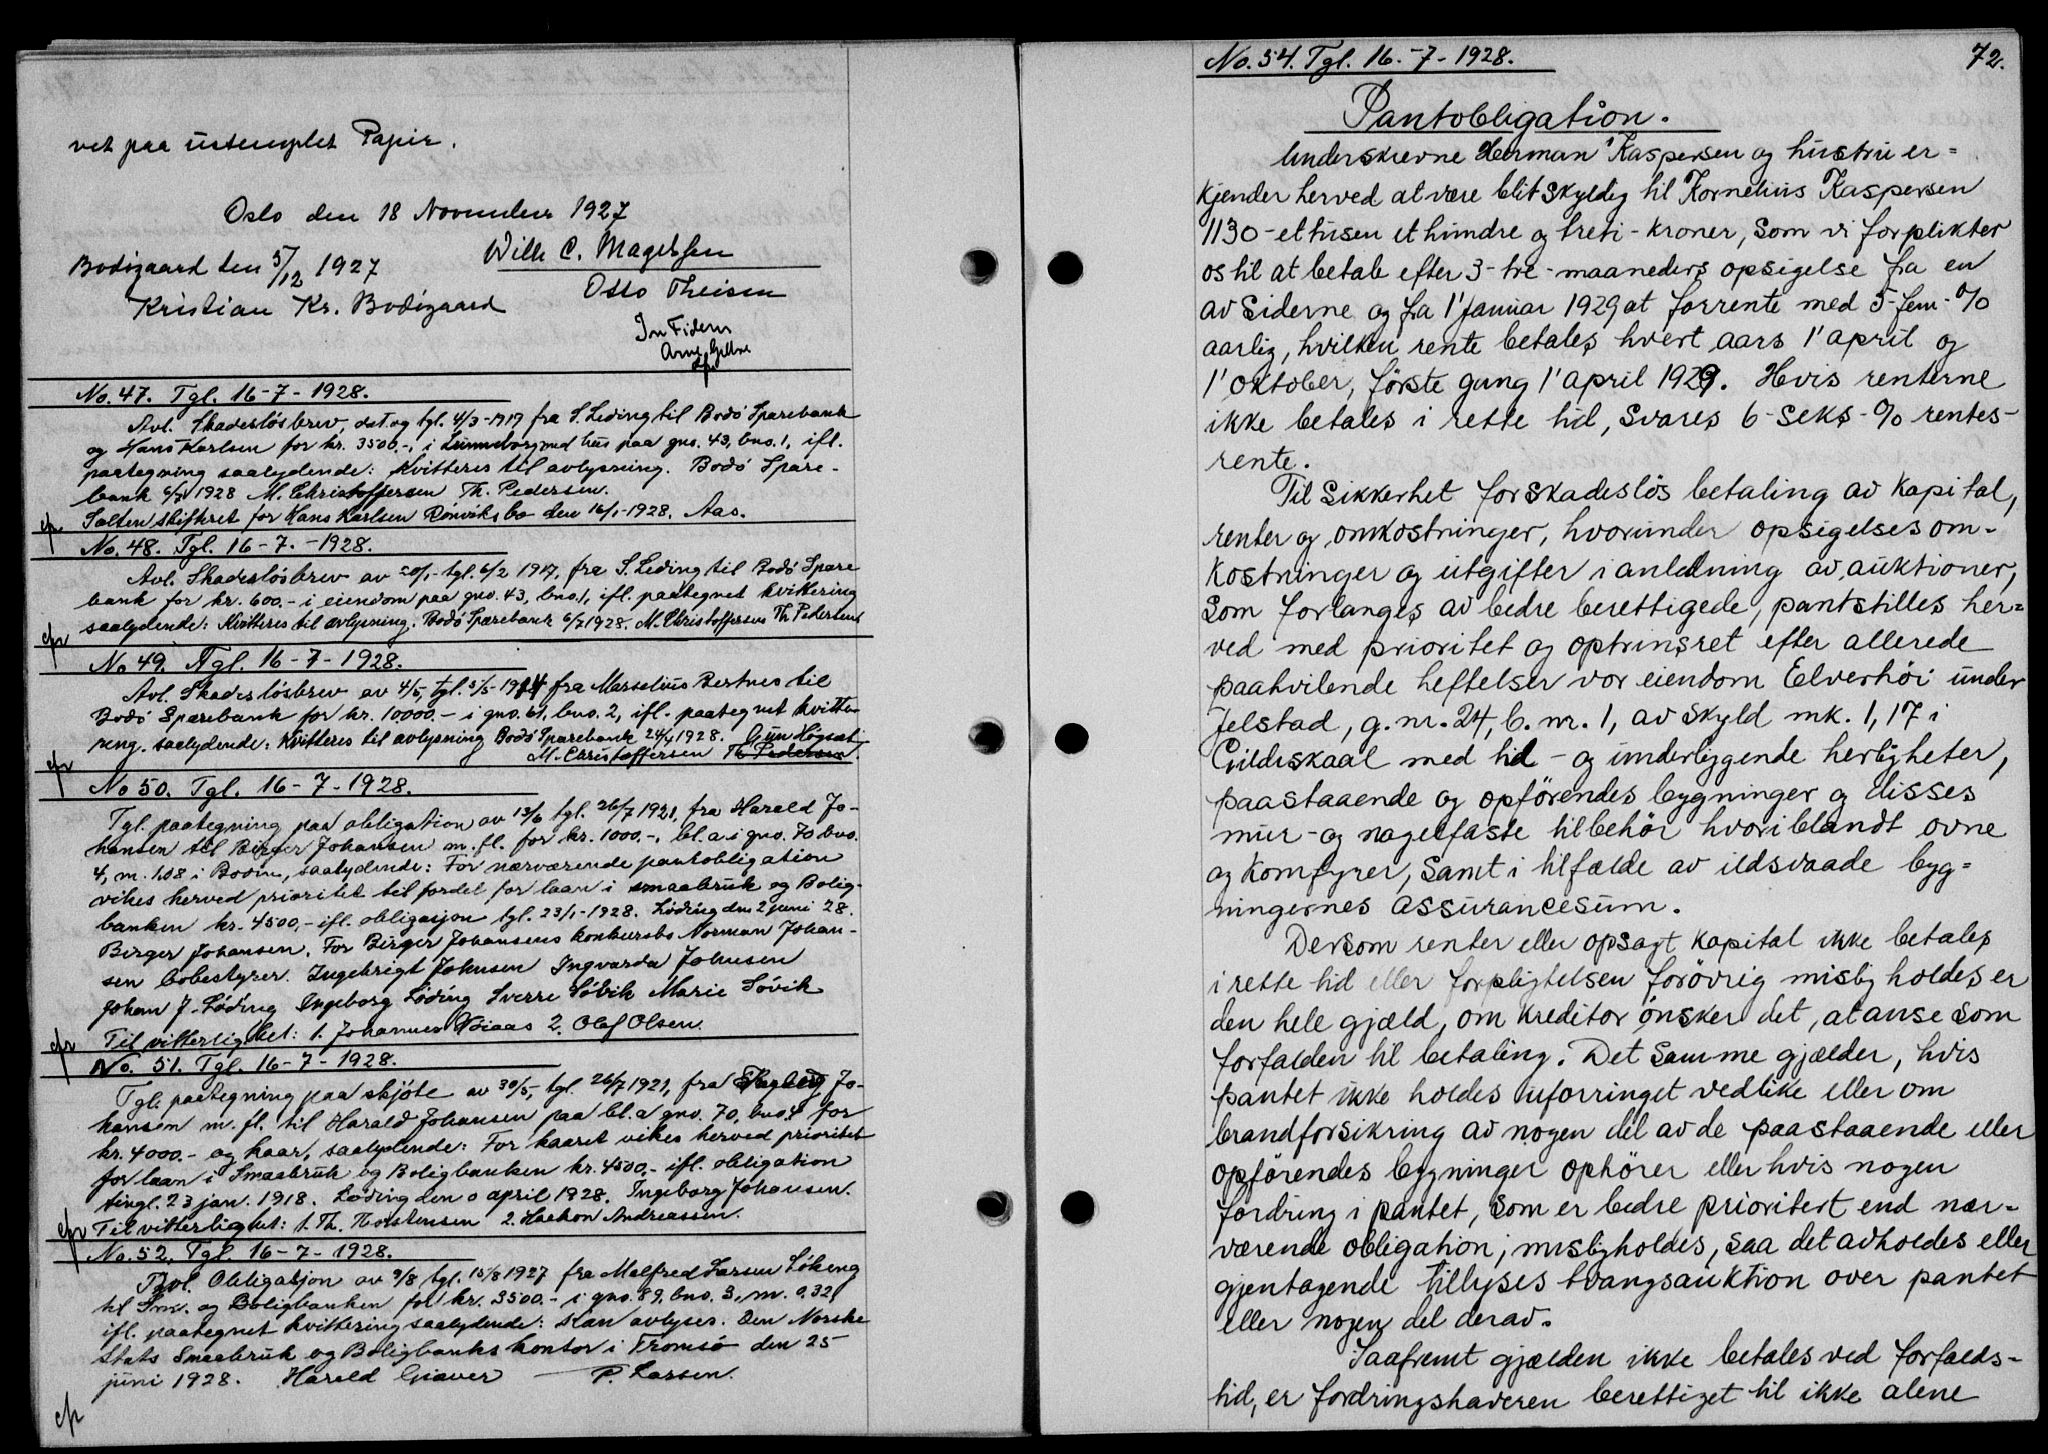 vet paa ustemplet Papir.
Oslo den 18 November 1927
Bodøgaard den 5/12 1927
Wilh C. Magelssen
Otto Theisen
Kristian Kr. Bodøgaard
In Fidem
Arne
No. 47. Tgl. 16-7-1928.
Avl. Skadesløsbrev, dat. og tgl. 4/3-1919 fra S. Leding til Bodø Sparebank
og Hans Karlsen for kr. 3500.-, i Lunneborg med hus paa gno. 43, bno. 1, ifl.
paategning saalydende: Kvitteres til avlysning. Bodø Spare-
bank 6/7 1928 M. Christoffersen Th. Pedersen.
cfr Salten skifteret for Hans Karlsen Rønviks bo den 16/1-1928. Aas.
No. 48. Tgl. 16-7.-1928.
Avl. Skadesløsbrev av 20/1- tgl. 6/2 1917, fra S. Leding til Bodø Spare
bank for kr. 600.- i eiendom paa gno. 43, bno. 1, ifl. paategnet kvittering
cfr saalydende: Kvitteres til avlysning. Bodø Sparebank 6/7 1928. M. Christoffersen Th Pedersen
No 49. Tgl. 16-7-1928.
Avl. Skadesløsbrev av 4/5, tgl. 5/5-1914 fra Marselius Bertnes til
Bodø Sparebank for kr. 10000.- i gno. 61, bno. 2, ifl. paategnet kvitte-
ring. saalydende: Kvitteres til avlysning Bodø Sparebank 24/4 1928. Gund Løgsæt
cfr M. Christoffersen Th. Pedersen.
No 50. Tgl. 16-7-1928.
Tgl. paategning paa obligation av 13/6 tgl. 26/7 1921, fra Harald Jo-
hansen til Birger Johansen m. fl. for kr. 1000.-, bl. a. i gno. 70 bno.
4, m. 1.08 i Bodin, saalydende: For nærværende pantobligation
vikes herved prioritet til fordel for laan i smaabruk og Bolig-
banken kr. 4500,- ifl. obligasjon tgl. 23/1-1928. Løding den 2 juni 28.
Birger Johansen. For Birger Johansens konkursbo Norman Johan-
sen bobestyrer. Ingebrigt Johnsen Ingvarda Johnsen
Johan J. Løding Ingeborg Løding Sverre Søvik Marie Søvik
cfr Til vitterlighet: 1. Johannes Voiaas 2. Olaf Olsen.
No. 51. Tgl. 16-7-1928.
Tgl. paategning paa skjøte av 30/5, tgl. 26/7 1921, fra Ingeborg Jo-
hansen m. fl. til Harald Johansen paa bl. a gno. 70, bno 4 for
kr. 4000.- og kaar, saalydende: For kaaret vikes herved prioritet
for laan i Smaabruk og Boligbanken kr. 4500.- ifl. obligation
tingl. 23 jan. 1918. Løding den 0 april 1928. Ingeborg Johansen.
cfr Til vitterlighet: 1. Th. Torstensen 2. Haakon Andreassen.
No. 52. Tgl. 16-7-1928.
Avl. Obligasjon av 9/8 tgl. 15/8 1927 fra Malfred Larsen Løkeng
til Sm. og Boligbanken for kr. 3500.- i gno. 89, bno. 3, m. 0.32,
ifl. paategnet kvittering saalydende: Kan avlyses. Den Norske
Stats Smaabruk og Boligbanks kontor i Tromsø den 25
juni 1928. Harald Giæver P. Larsen.
cfr
No. 54. Tgl. 16-7-1928.
72.
Pantobligation.
Underskrevne Herman Kaspersen og hustru er=
kjender herved at være blit skyldig til Kornelius Kaspersen
1130 - ettusen et hundre og treti - kroner, som vi forplikter
os til at betale efter 3-tre-maaneders opsigelse fra en
av siderne og fra 1' januar 1929 at forrente med 5-fem-%
aarlig, hvilken rente betales hvert aars 1' april og
1' oktober, første gang 1' april 1929. Hvis renterne
ikke betales i rette tid, svares 6-seks-% rentes-
rente.
Til sikkerhet for skadesløs betaling av kapital,
renter og omkostninger, hvorunder opsigelsesom-
kostninger og utgifter i anledning av auktioner,
som forlanges av bedre berettigede, pantstilles her=
ved med prioritet og optrinsret efter allerede
paahvilende heftelser vor eiendom Elverhøi under
Jelstad, g.nr. 24, b.nr. 1, av skyld mk. 1,17 i
Gildeskaal med til- og underliggende herligheter,
paastaaende og opførendes bygninger og disses
mur- og nagelfaste tilbehør hvoriblandt ovne
og komfyrer, samt i tilfælde av ildsvaade byg=
ningernes assurancesum.
Dersom renter eller opsagt kapital ikke betales
i rette tid eller forpligtelsen forøvrig misligholdes er
den hele gjæld, om kreditor ønsker det, at anse som
forfalden til betaling. Det samme gjælder, hvis
pantet ikke holdes uforringet vedlike eller om
brandforsikring av nogen del av de paastaaende eller
opførendes bygninger ophører eller hvis nogen
fordring i pantet, som er bedre prioritert end nær-
værende obligation, misligholdes, saa det avholdes eller
gjentagende tillyses tvangsauktion over pantet
eller nogen del derav.
Saafremt gjælden ikke betales ved forfalds-
tid, er fordringshaveren berettiget til ikke alene